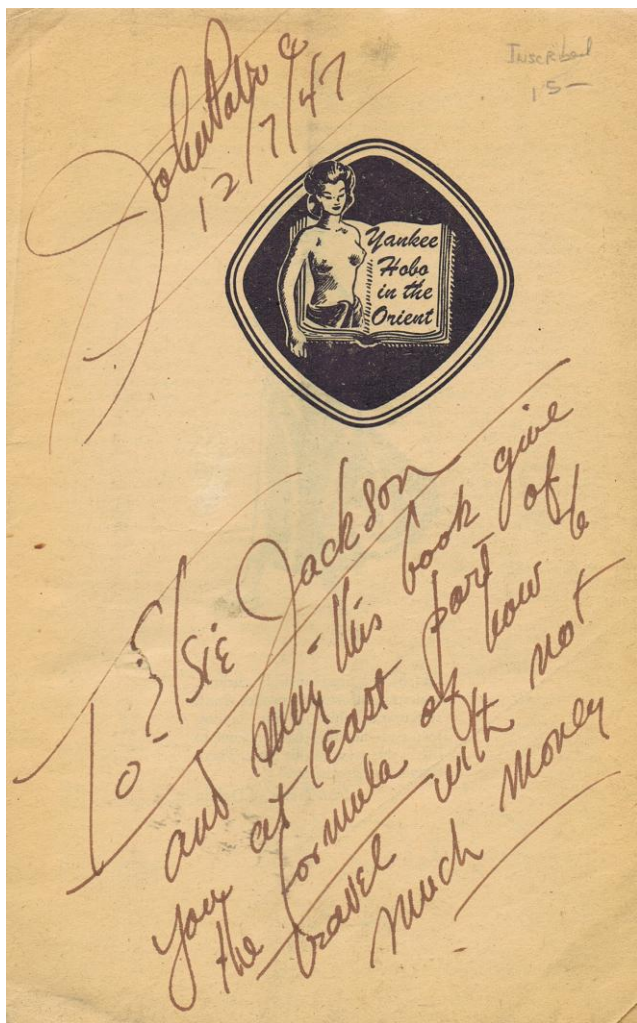 John Patric
12/7/47
Inscribed
15—
Yankee
Hobo
in the
Orient
To Elsie Jackson
and may this book give
you at least part of
the formula of how to
travel with not
much money